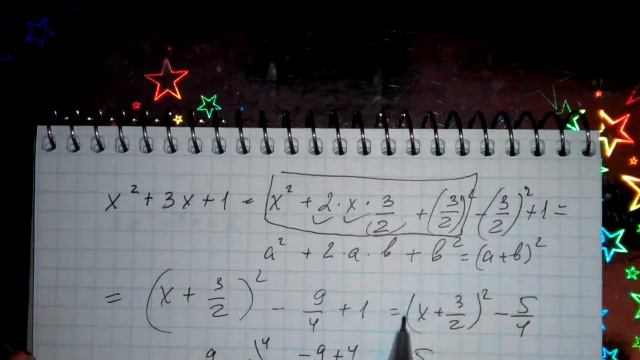 x² + 3x + 1 = x² + 2·x·3/2 + (3/2)² - (3/2)² + 1 =
a² + 2·a·b + b² = (a+b)²
= (x + 3/2)² - 9/4 + 1 = (x + 3/2)² - 5/4
-9+4